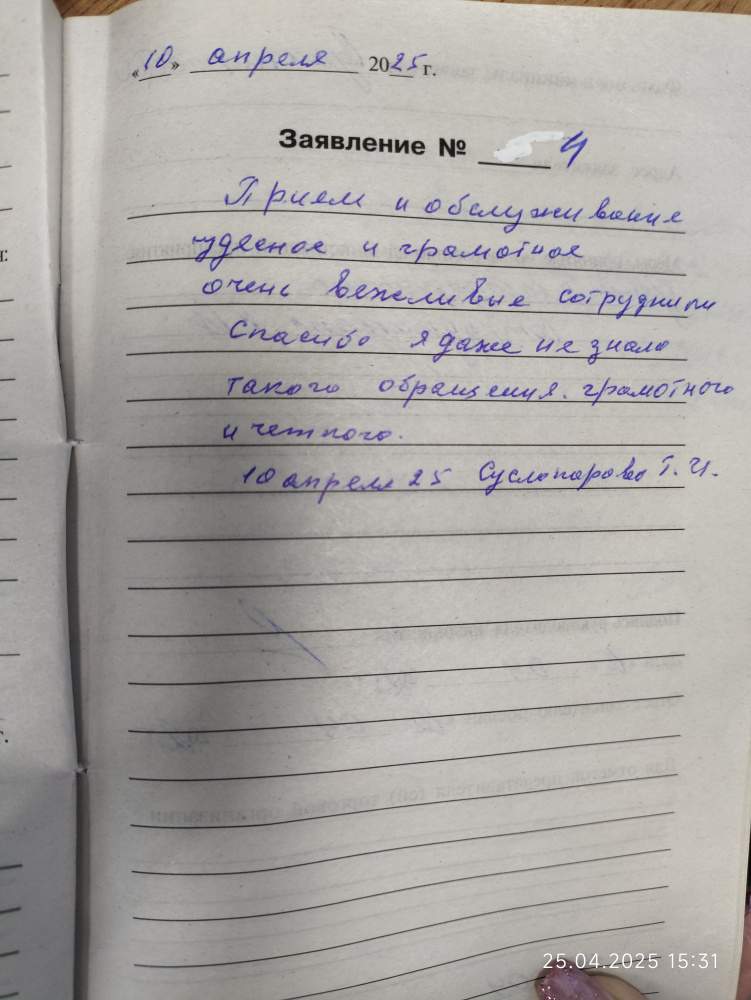 «10» апреля 2025 г.
Заявление № 4
Прием и обслуживание
чудесное и грамотное
очень вежливые сотрудники
Спасибо я даже не знала
такого обращения. грамотного
и четкого.
10 апреля 25 Суслопарова Т. И.
25.04.2025 15:31